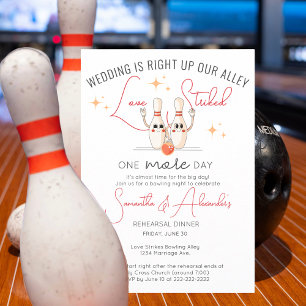 WEDDING IS RIGHT UP OUR ALLEY
Love Striked
ONE more DAY
It's almost time for the big day!
Join us for a bowling night to celebrate
Samantha & Alexander's
REHEARSAL DINNER
FRIDAY, JUNE 30
Love Strikes Bowling Alley
1284 Marriage Ave.
start right after the rehearsal ends at
Cross Church (around 7:00)
by June 10 at 222-222-2222